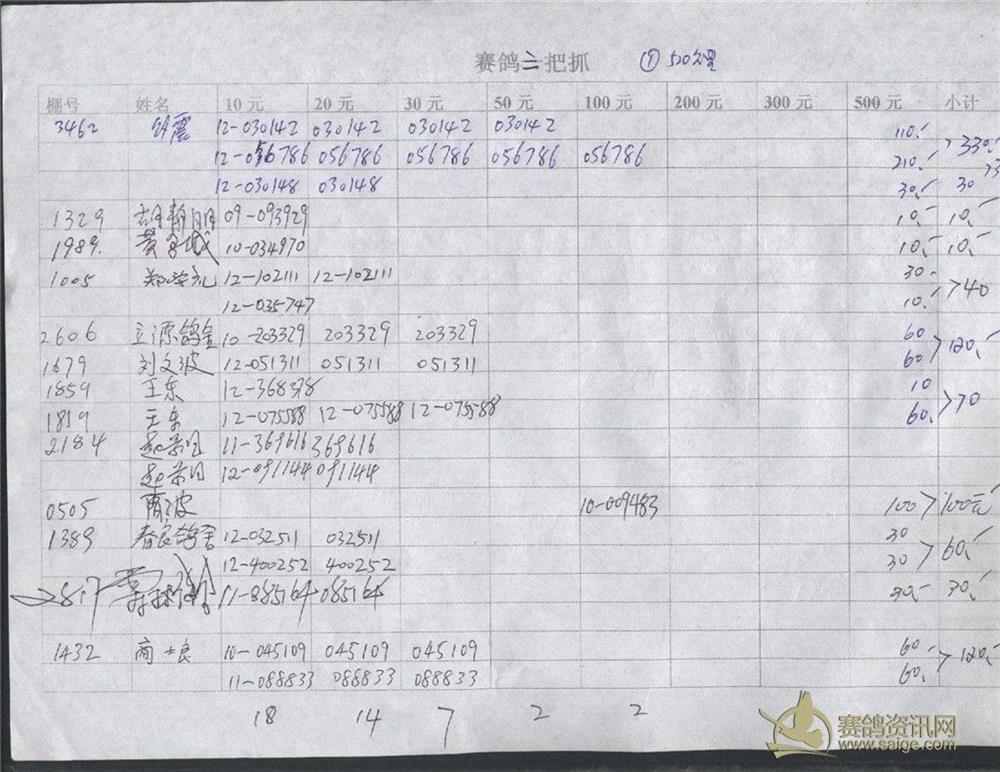 赛鸽三把抓 ① 520公里
棚号 姓名 10元 20元 30元 50元 100元 200元 300元 500元 小计
3462 12-030142 030142 030142 030142 110.-
12-056786 056786 056786 056786 056786 210.- >330.-
12-030148 030148 30.- 30
1329 胡静明 09-093929 10.- 10.-
1989. 10-034970 10.- 10.-
1005 12-102111 12-102111 30.-
12-035747 10.- >40
2606 立源鸽皇 10-203329 203329 203329 60
1679 刘文波 12-051311 051311 051311 60 >120.-
1859 王东 12-368378 10
1819 王东 12-075588 12-075588 12-075588 60. >70
2184 11-369616 369616
12-091144 091144
0505 10-009483 100 >100元
1389 春良鸽舍 12-032511 032511 30
12-400252 400252 30 >60.-
11-085164 085164 30.- 30.-
1432 商士良 10-045109 045109 045109 60.-
11-088833 088833 088833 60. >120.-
18 14 7 2 2
赛鸽资讯网
www.saige.com